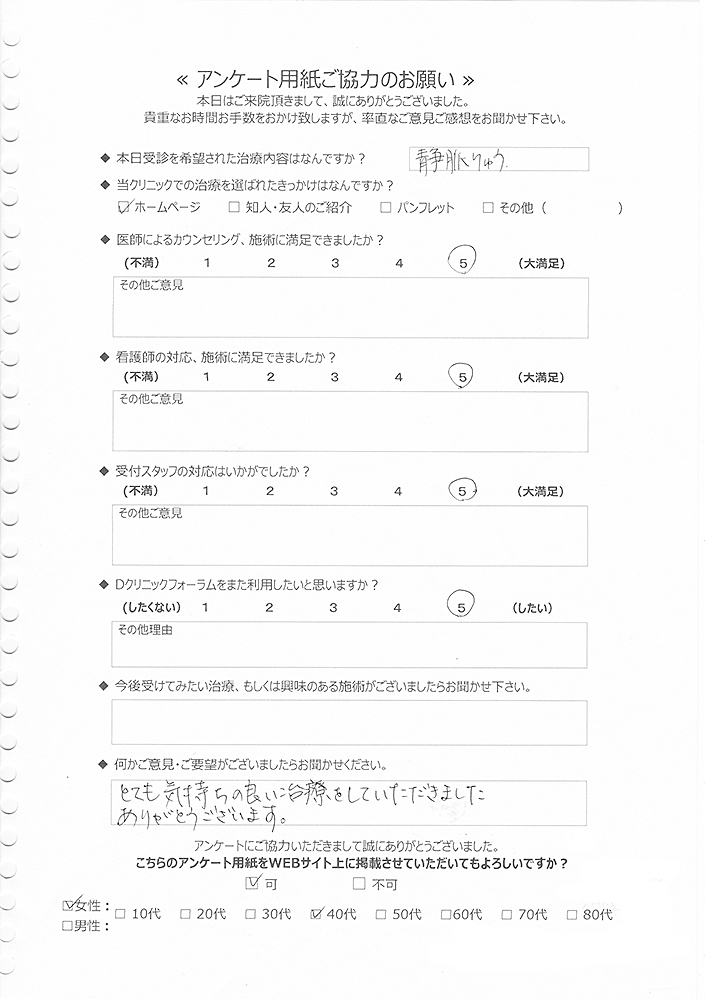 ≪ アンケート用紙ご協力のお願い ≫
本日はご来院頂きまして、誠にありがとうございました。
貴重なお時間お手数をおかけ致しますが、率直なご意見ご感想をお聞かせ下さい。
◆ 本日受診を希望された治療内容はなんですか？ 静脈りゅう.
◆ 当クリニックでの治療を選ばれたきっかけはなんですか？
☑ ホームページ □ 知人・友人のご紹介 □ パンフレット □ その他（ ）
◆ 医師によるカウンセリング、施術に満足できましたか？
(不満) 1 2 3 4 5 (大満足)
その他ご意見
◆ 看護師の対応、施術に満足できましたか？
(不満) 1 2 3 4 5 (大満足)
その他ご意見
◆ 受付スタッフの対応はいかがでしたか？
(不満) 1 2 3 4 5 (大満足)
その他ご意見
◆ Dクリニックフォーラムをまた利用したいと思いますか？
(したくない) 1 2 3 4 5 (したい)
その他理由
◆ 今後受けてみたい治療、もしくは興味のある施術がございましたらお聞かせ下さい。
◆ 何かご意見・ご要望がございましたらお聞かせください。
とても気持ちの良い治療をしていただきました
ありがとうございます。
アンケートにご協力いただきまして誠にありがとうございました。
こちらのアンケート用紙をWEBサイト上に掲載させていただいてもよろしいですか？
☑ 可 □ 不可
☑女性： □ 10代 □ 20代 □ 30代 ☑ 40代 □ 50代 □60代 □ 70代 □ 80代
□男性：